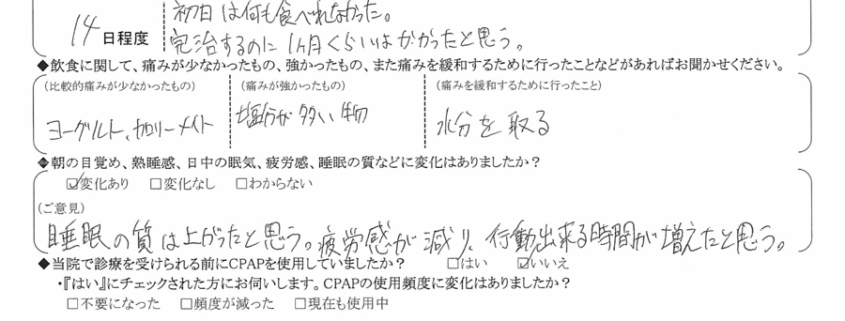 初日は何も食べれなかった。
14日程度
完治するのに1ヶ月くらいはかかったと思う。
◆飲食に関して、痛みが少なかったもの、強かったもの、また痛みを緩和するために行ったことなどがあればお聞かせください。
(比較的痛みが少なかったもの) (痛みが強かったもの) (痛みを緩和するために行ったこと)
ヨーグルト、カロリーメイト 塩分が多い物 水分を取る
◆朝の目覚め、熟睡感、日中の眠気、疲労感、睡眠の質などに変化はありましたか？
☑変化あり □変化なし □わからない
(ご意見)
睡眠の質は上がったと思う。疲労感が減り、行動出来る時間が増えたと思う。
◆当院で診療を受けられる前にCPAPを使用していましたか？ □はい ☑いいえ
・『はい』にチェックされた方にお伺いします。CPAPの使用頻度に変化はありましたか？
□不要になった □頻度が減った □現在も使用中